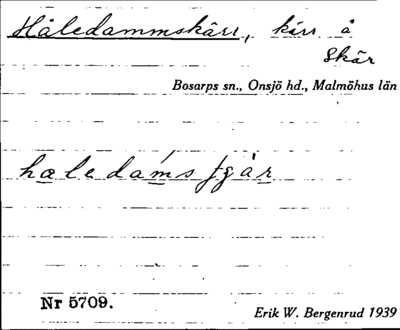 Håledammskärr, kärr å
Skär
Bosarps sn., Onsjö hd., Malmöhus län
Nr 5709.
Erik W. Bergenrud 1939